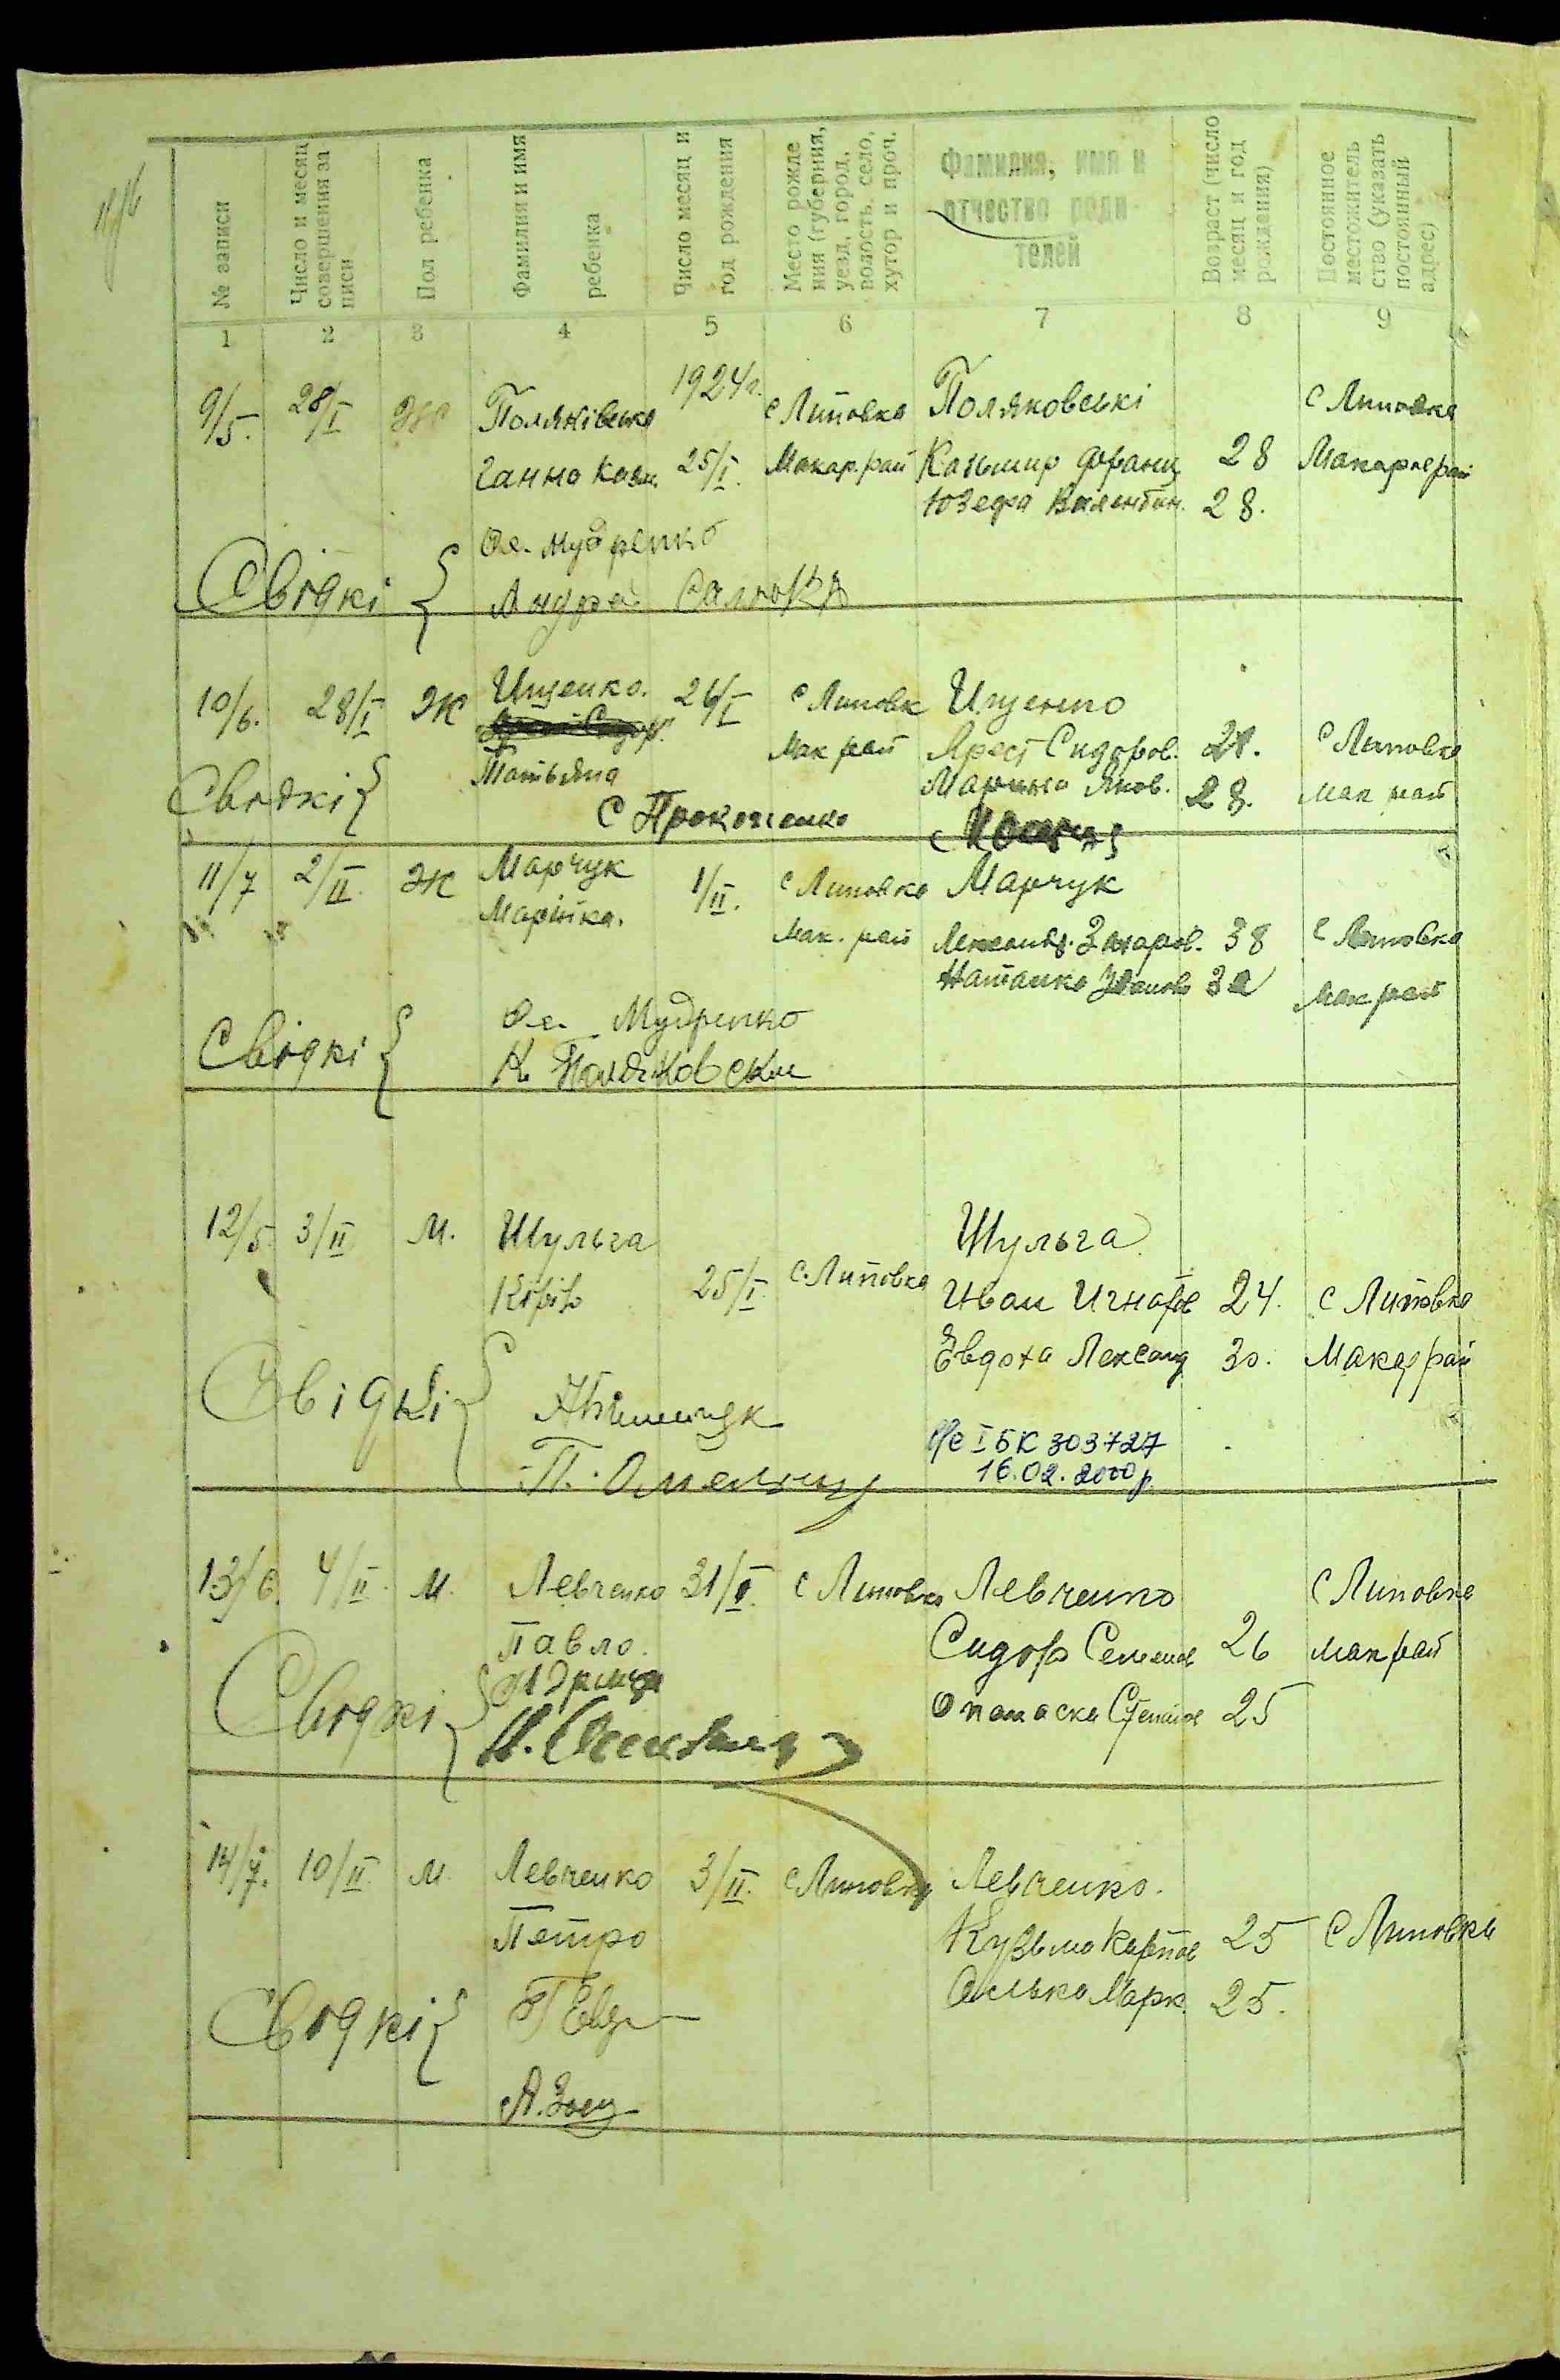 № записи
Число и месяц совершения за писи
Пол ребенка
Фамилия и имя ребенка
Число месяц и год рождения
Место рожде ния (губерния, уезд, город, волость, село, хутор и проч.
Фамилия, имя и отчество роди телей
Возраст (число месяц и год рождения)
Постоянное местожитель ство (указать постоянный адрес)
1 2 3 4 5 6 7 8 9
1924 г.
9/5. 28/I Ж Поляківська с Липовка Поляковські с Липовка
Ганна Казм. 25/I. Макар. рай Казьмир Франц 28
Юзефа Валентин. 28.
Ол. Мудренко
Свідкі { Андрей
10/6. 28/I Ж Ищенко. 26/I с Липовк Ищенко
Мак рай Арест Сидоров. с Липовка
Татьяна Марина Яков. 28. мак рай
Свідкі { С Прокопенко
11/7 2/II. Ж Марчук 1/II. с Липовка Марчук
Марійка. Мак. рай Лександ. Захаров. 38 с Липовка
Наталка Мак рай
Ол. Мудренко
Свідкі { К Поляковски
12/5. 3/II М. Шульга Шульга
25/I. с. Липовка Иван Игнатов 24. с Липовка
Евдоха Лександ 30. Макар рай
Свідкі {
І БК 303727
16.02.2000р.
13/6. 4/II. М. Левченко 31/I. с Липовка Левченко с Липовка
Павло. Сидор Семенов 26 мак рай
Свідкі { 25
14/7. 10/II. М. Левченко 3/II. с Липовка Левченко.
Петро Кузьма Карпов 25 с Липовка
Марк. 25.
Свідкі {